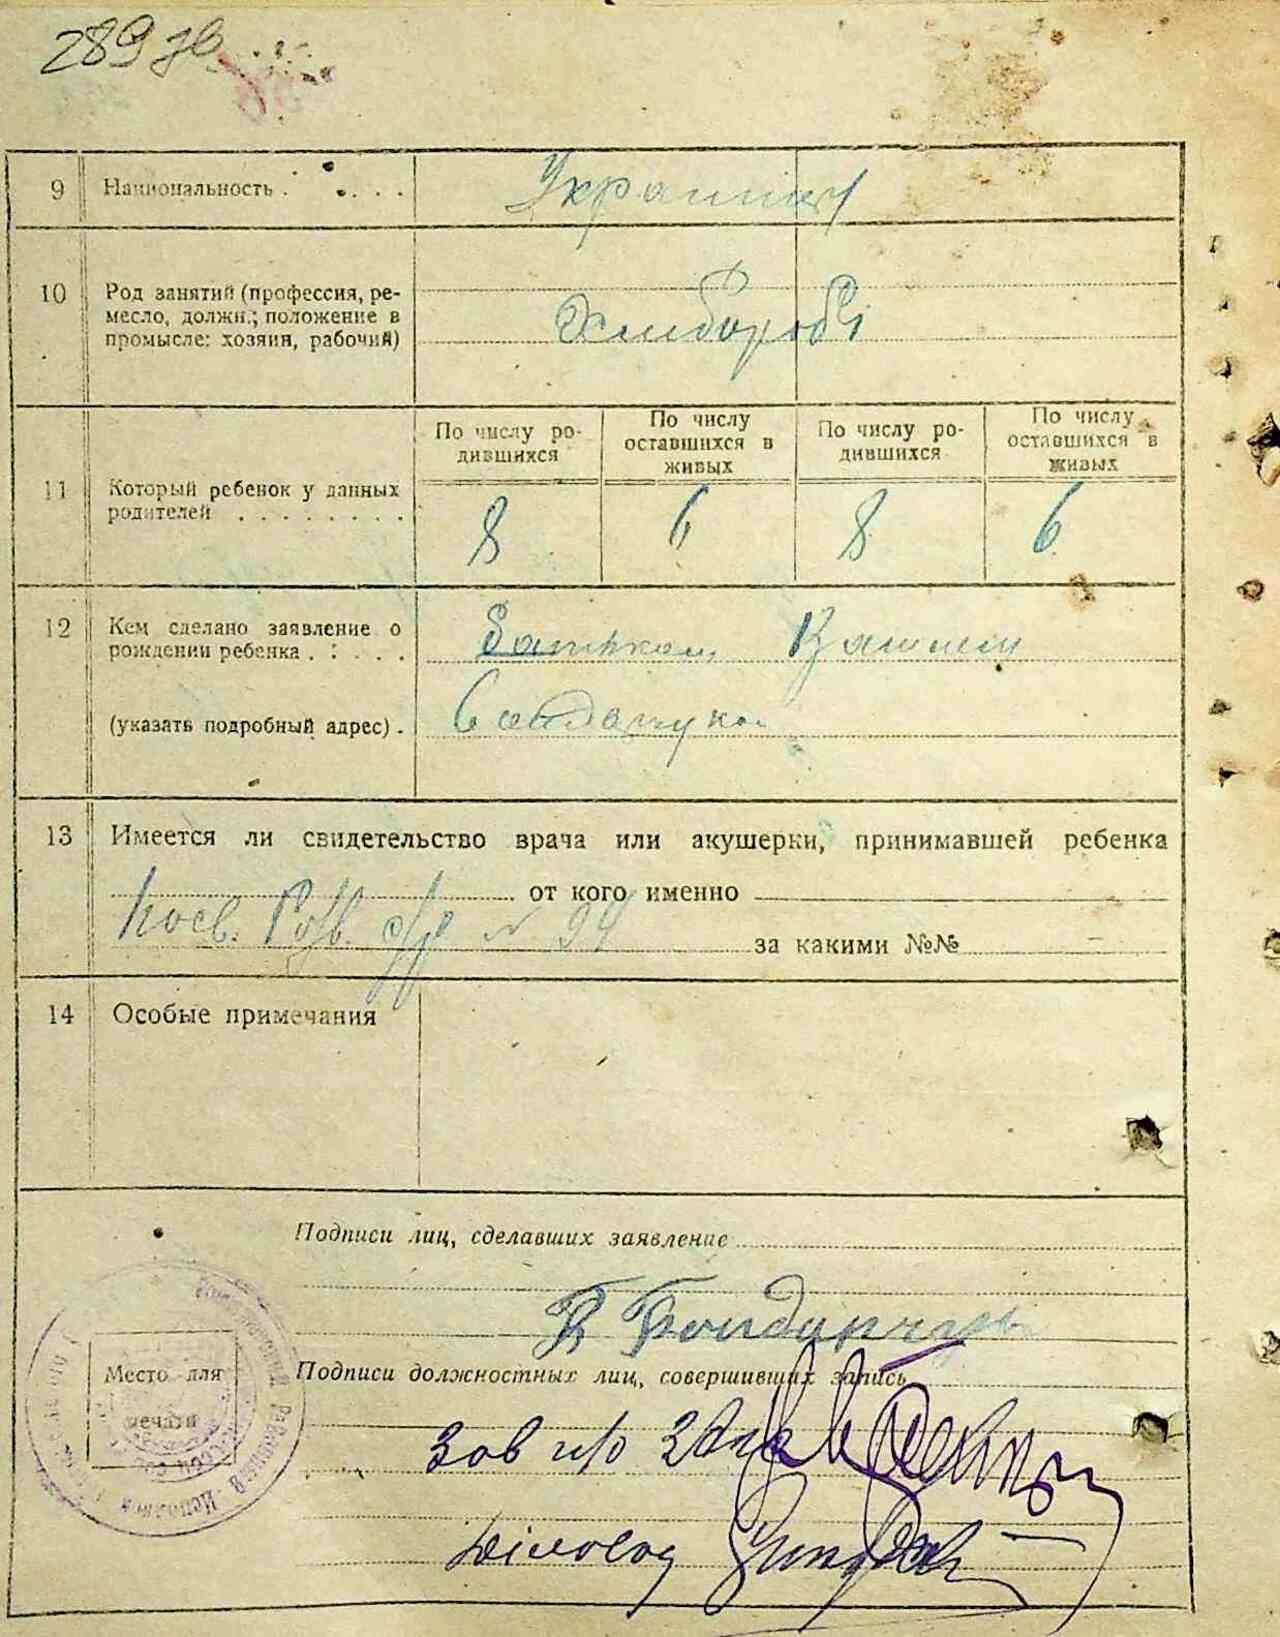 289
9 Национальность . . . . .
Украинцы
10 Род занятий (профессия, ре-
месло, должн.; положение в
промысле: хозяин, рабочий)
Хлибороби
По числу ро-
дившихся
По числу
оставшихся в
живых
По числу ро-
дившихся
По числу
оставшихся в
живых
11 Который ребенок у данных
родителей . . . . . . . .
8 6 8 6
12 Кем сделано заявление о
рождении ребенка . . . . .
Батьком
(указать подробный адрес) .
Бондарчуком
13 Имеется ли свидетельство врача или акушерки, принимавшей ребенка
от кого именно
№ 94
за какими №№ —
14 Особые примечания
Подписи лиц, сделавших заявление
Бондарчук
Место для
печати
Подписи должностных лиц, совершивших запись
Зав
Діловод